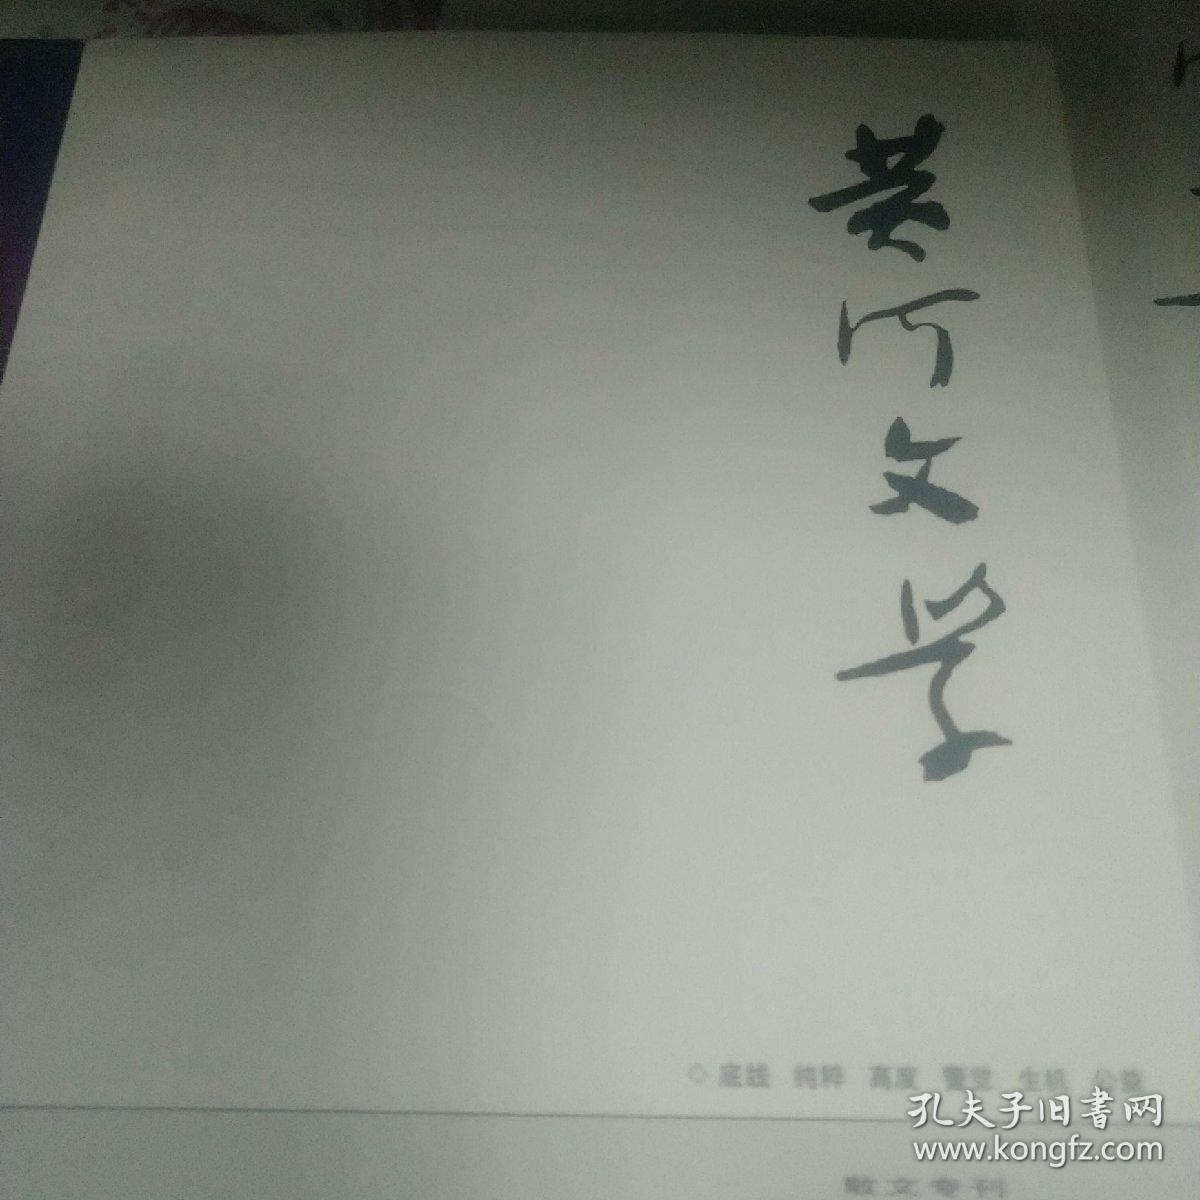 黄河文学
◇ 底线 纯粹 高度 警觉 生机 公益
散文专刊
孔夫子旧書网
www.kongfz.com